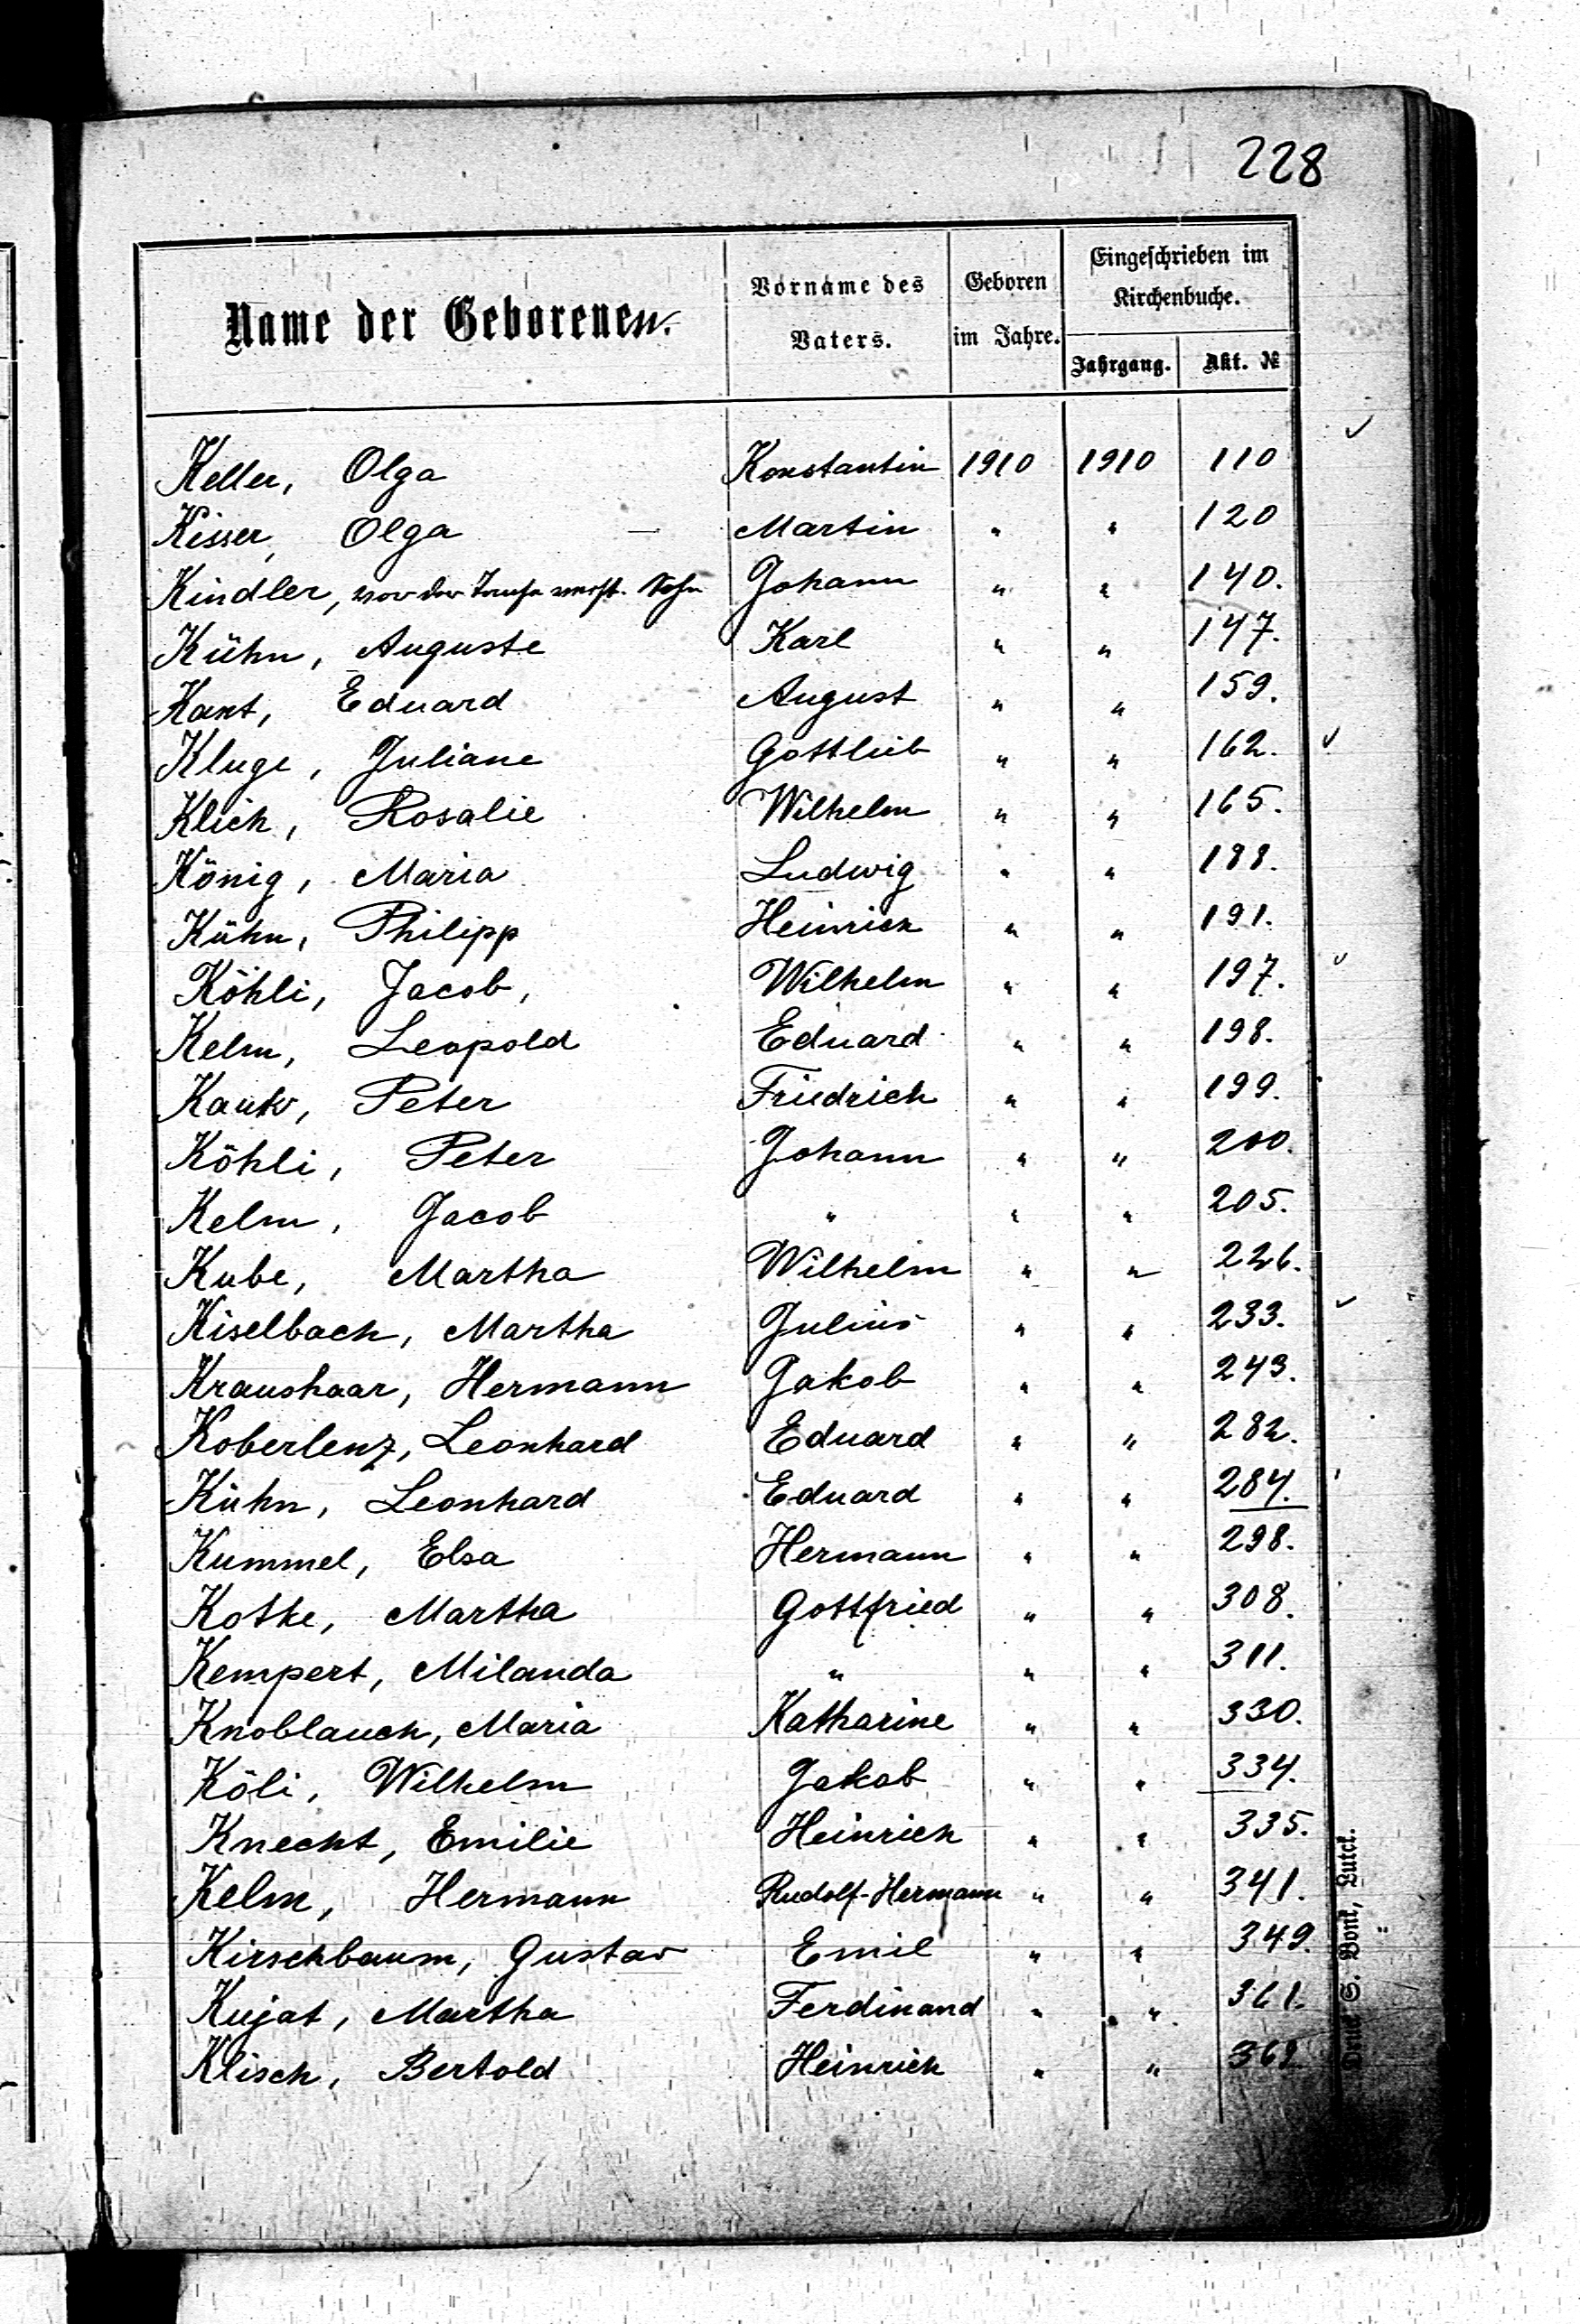 228
Name der Geborenen.
Vorname des Vaters.
Geboren im Jahre.
Eingeschrieben im Kirchenbuche.
Jahrgang.
Akt. №
Keller, Olga Konstantin 1910 1910 110
Kisser, Olga — Martin " " 120
Kindler, vor der Taufe verst. Sohn Johann " " 140.
Kühn, Auguste Karl " " 147.
Kant, Eduard August " " 159.
Kluge, Juliane Gottlieb " " 162. ✓
Klich, Rosalie Wilhelm " " 165.
König, Maria Ludwig " " 188.
Kühn, Philipp Heinrich " " 191.
Köhli, Jacob, Wilhelm " " 197.
Kelm, Leopold Eduard " " 198.
Peter Friedrich " " 199.
Köhli, Peter Johann " " 200.
Kelm, Jacob " " " 205.
Kube, Martha Wilhelm " " 226.
Kiselbach, Martha Julius " " 233.
Kraushaar, Hermann Jakob " " 243.
Koberlenz, Leonhard Eduard " " 282.
Kühn, Leonhard Eduard " " 284.
Kummel, Elsa Hermann " " 298.
Kotke, Martha Gottfried " " 308.
Kempert, Milanda " " " 311.
Knoblauch, Maria Katharine " " 330.
Köli, Wilhelm Jakob " " 334.
Knecht, Emilie Heinrich " " 335.
Kelm, Hermann Rudolf-Hermann " " 341.
Kirschbaum, Gustav Emil " " 349.
Kujat, Martha Ferdinand " " 361.
Klisch, Bertold Heinrich " "
Druck S. Bonk, Lutzk.